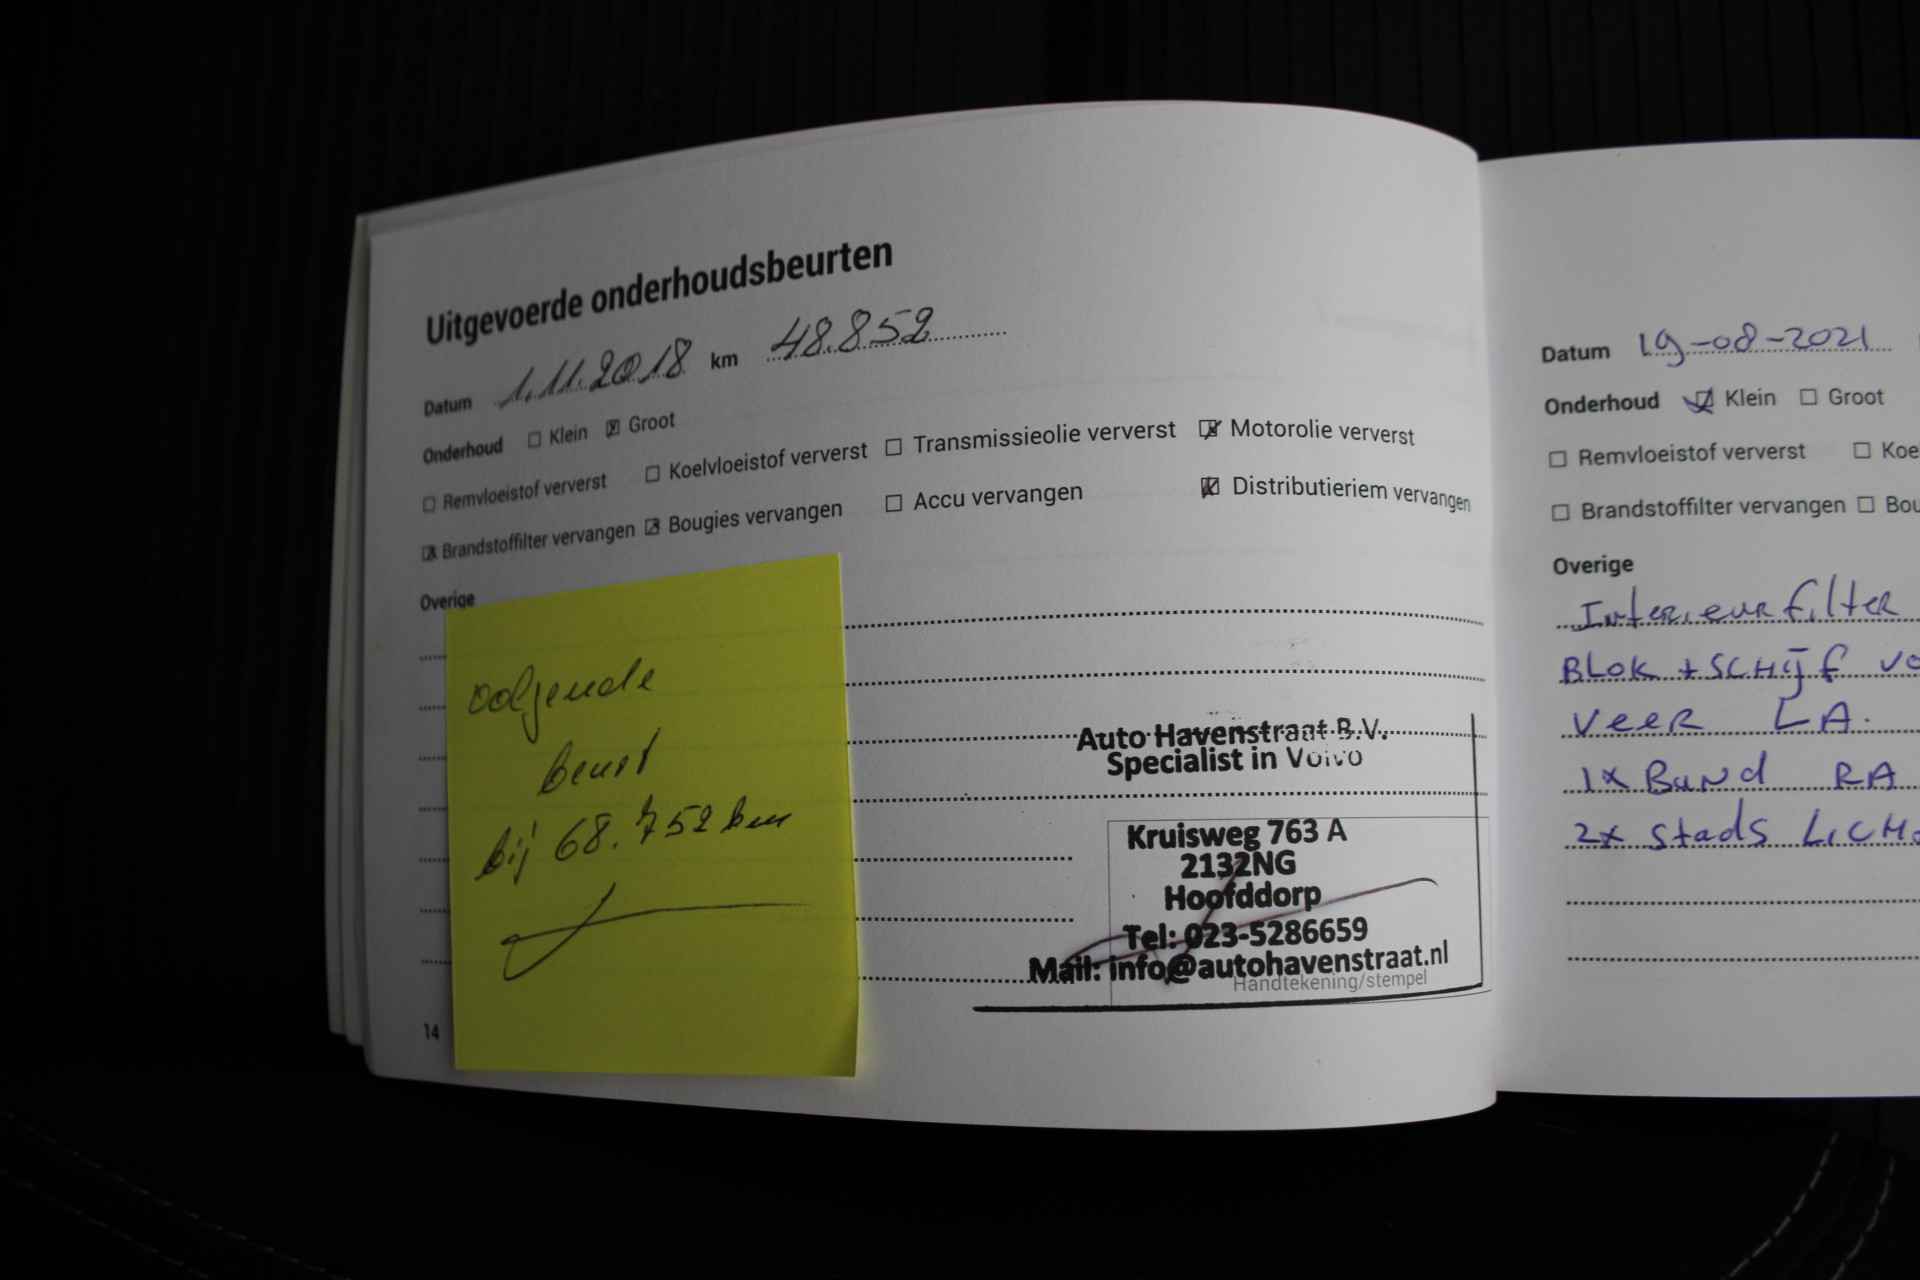 Uitgevoerde onderhoudsbeurten
Datum 1.11.2018 km 48.852
Onderhoud ☐ Klein ☒ Groot
☐ Remvloeistof ververst ☐ Koelvloeistof ververst ☐ Transmissieolie ververst ☒ Motorolie ververst
☒ Brandstoffilter vervangen ☒ Bougies vervangen ☐ Accu vervangen ☒ Distributieriem vervangen
Overige
volgende
beurt
bij 68.752 km
Auto Havenstraat B.V.
Specialist in Volvo
Kruisweg 763 A
2132NG
Hoofddorp
Tel: 023-5286659
Mail: info@autohavenstraat.nl
Handtekening/stempel
14
Datum 19-08-2021
Onderhoud ☑ Klein ☐ Groot
☐ Remvloeistof ververst ☐ Koe
☐ Brandstoffilter vervangen ☐ Bou
Overige
Interieurfilter
Blok + schijf vo
Veer LA.
1x Band RA
2x Stads Lich